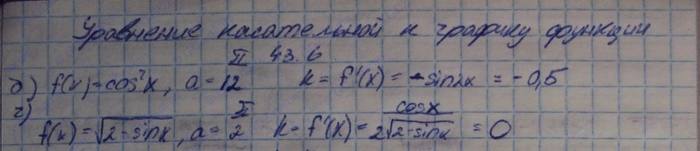 Уравнение касательной к графику функции
43.6
б) f(x)=cos²x, a=π/12 k=f'(x)=-sin2x=-0,5
г) f(x)=√(2-sinx), a=π/2 k=f'(x)=cosx/(2√(2-sinx))=0